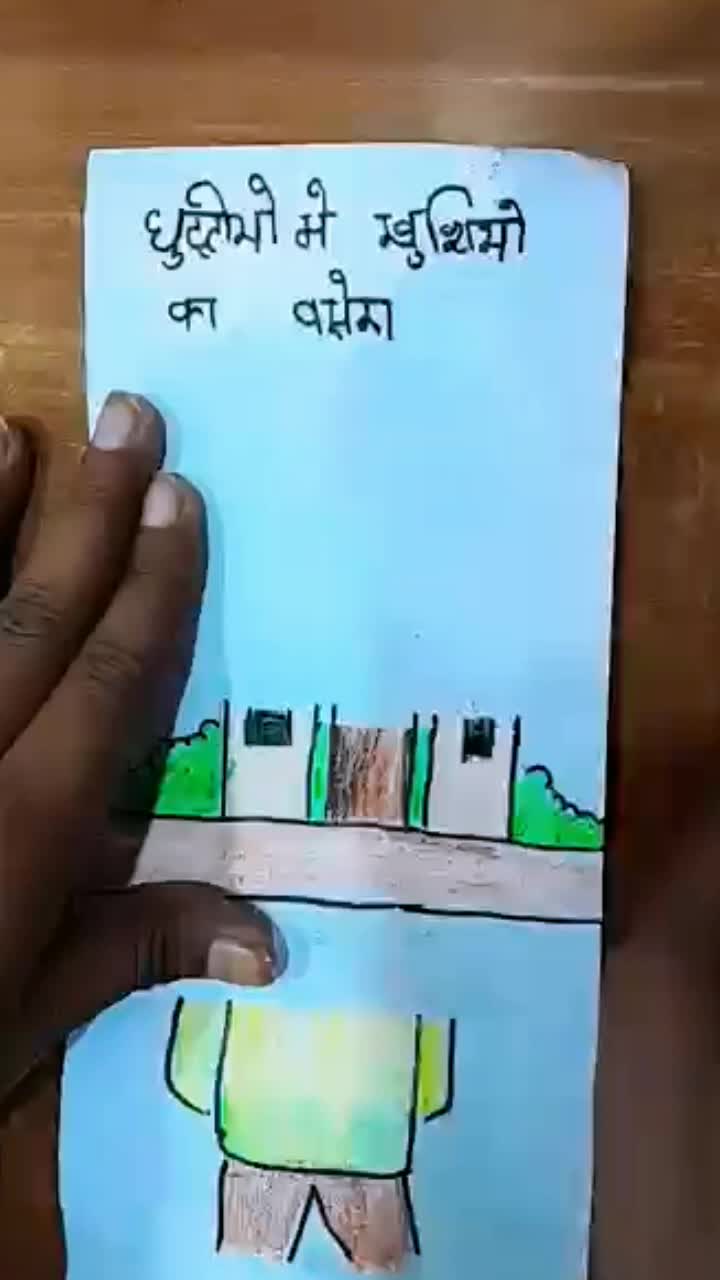 छुट्टीयो मे खुशियो
का बसेरा